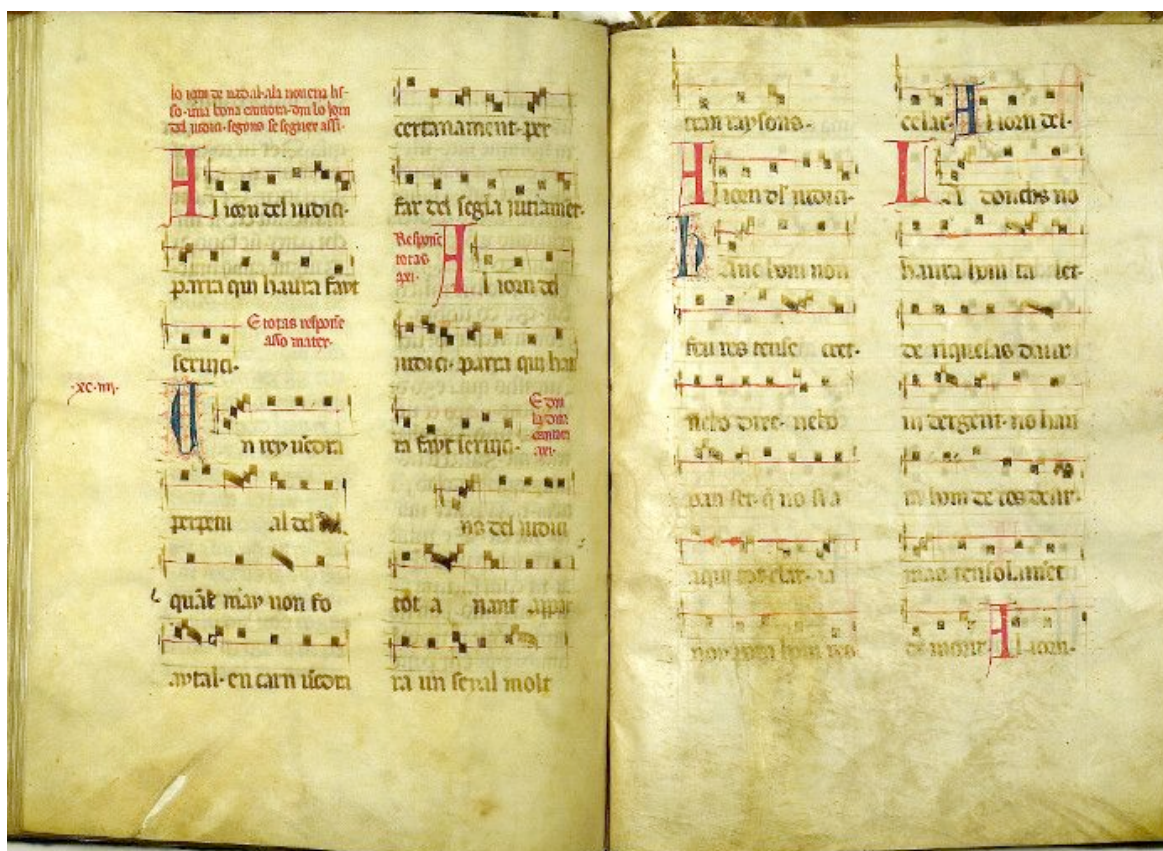 lo iorn de nadal· ala novena lis-
so· una bona cantora· diu lo jorn
del iudici· segons se seguex assi·
Al iorn del iudici·
parra qui haura fayt
servici·
E totas responē
asso matex·
·xc·iiii·
Un rey vēdra
perpetu al del
quāē may non fo
aytal· en carn vēdra
certanament· per
far del segla iutiamet·
Responē
totas
axi·
Al iorn del
iudici· parra qui hau
ra fayt servici·
E diu
la dita
cantora
axi·
ns del iudici
tot a nant appar
ra un seyal molt
tran raysons·
Al iorn dl' iudici·
hanc hom non
feu res tense cret·
nelo dire· nelo
pan ser· q̄ no sia
aqui tot clar· ia
noy pora hom res
celar· Al iorn del·
La donchs no
haura hom ta let
de riquesas daur
ni dergent· no hau
ni hom de res desir·
mas tensolamēt
de morir· Al iorn·